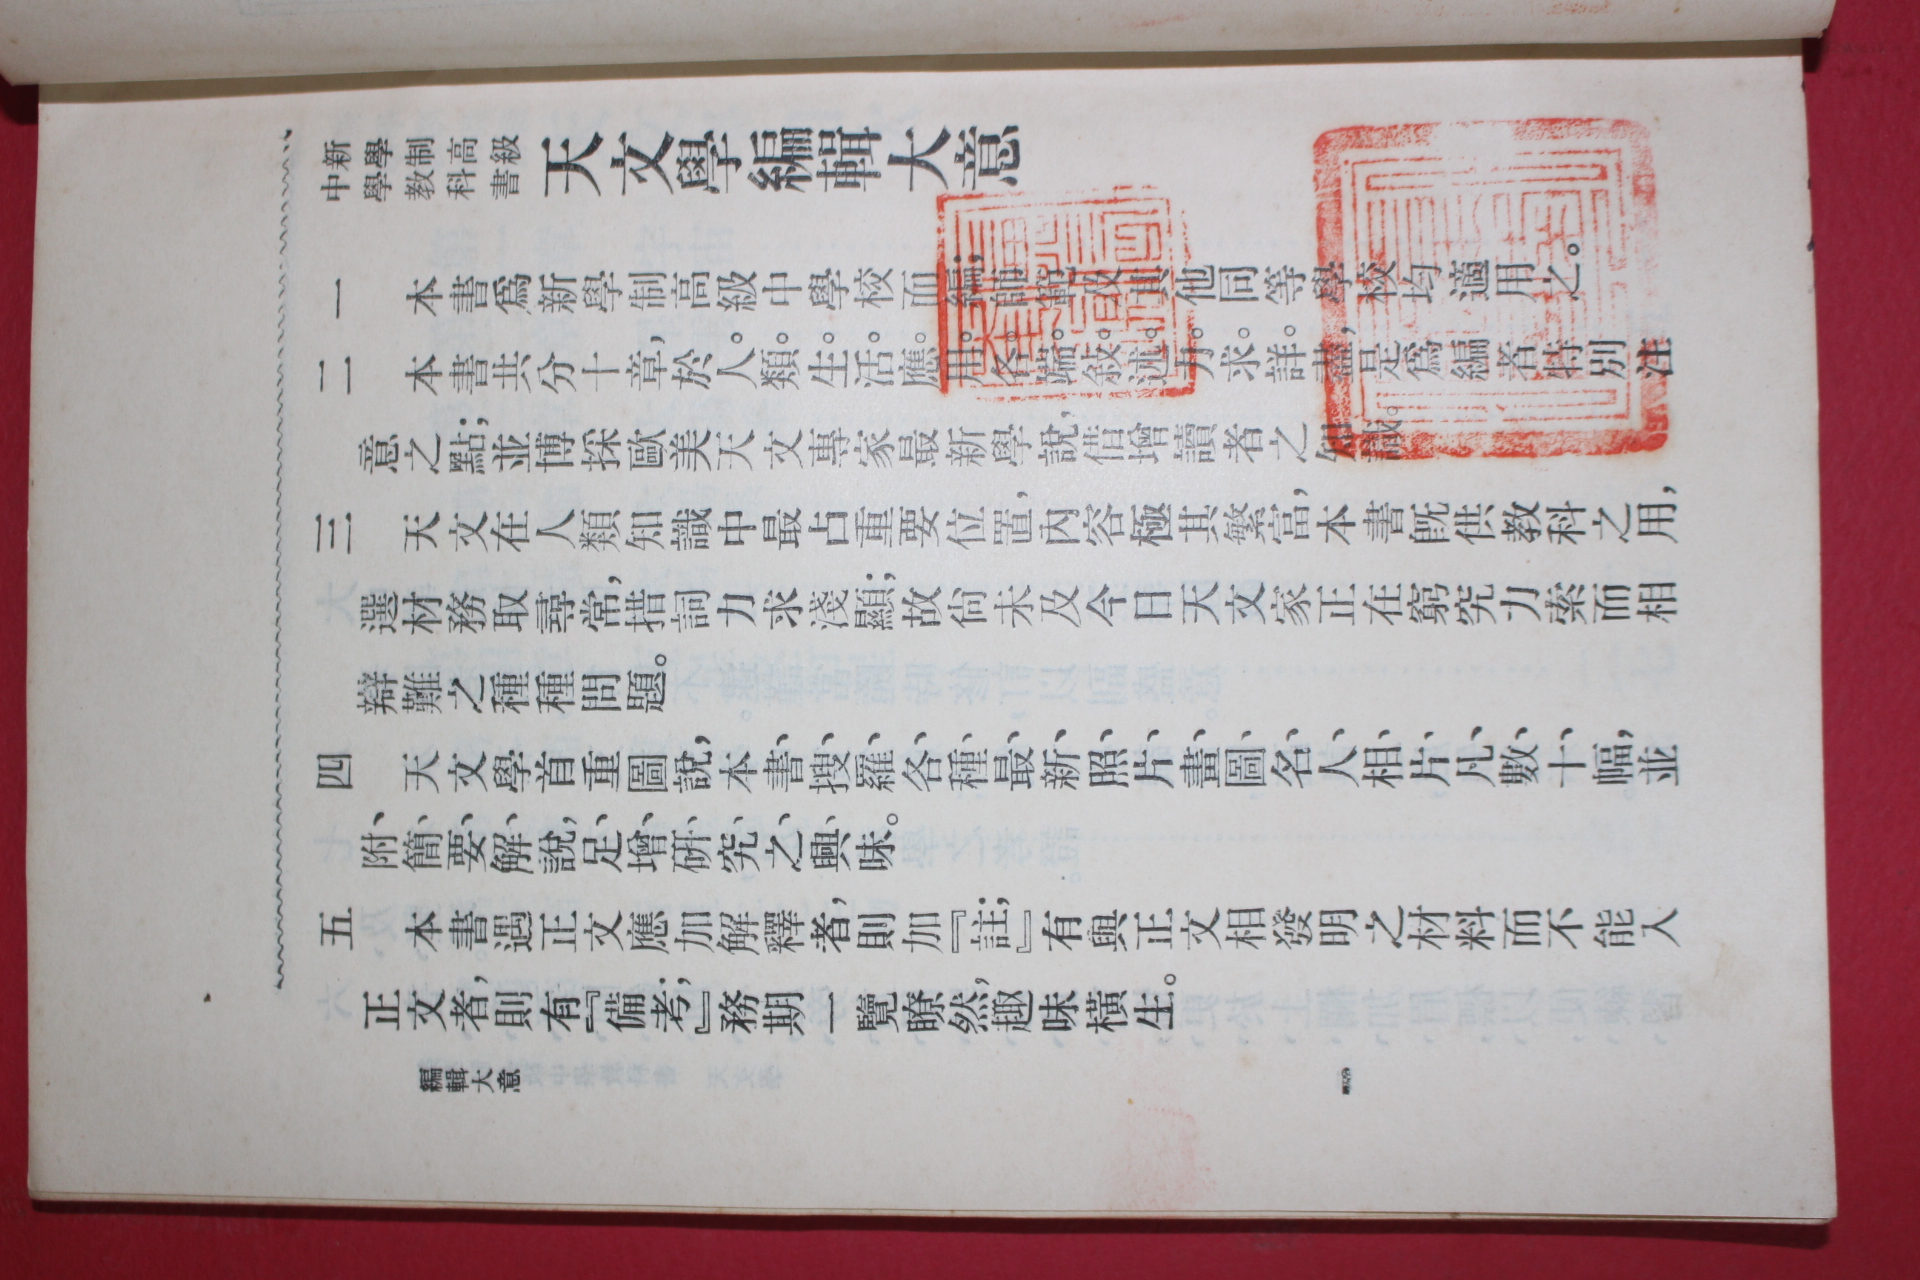 新學制高級
中學教科書
天文學編輯大意
一　本書爲新學制高級中學校而編；師範敎其他同等學校均適用之。
二　本書共分十章，於人。類。生。活。應。用。各。端。敍。述。力。求。詳。盡，是爲編者特別注
意之點；並博採歐美天文專家最新學說，借增讀者之知識。
三　天文在人類知識中最占重要位置，內容極其繁富，本書旣供教科之用，
選材務取尋常，措詞力求淺顯；故尙未及今日天文家正在窮究力索而相
辯難之種種問題。
四　天文學首重圖說，本、書、搜、羅、各、種、最、新、照、片、畫、圖、名、人、相、片、凡、數、十、幅，並
附、簡、要、解、說，足、增、硏、究、之、興、味。
五　本書遇正文應加解釋者，則加『註；』有與正文相發明之材料而不能入
正文者，則有『備考；』務期一覽瞭然，趣味橫生。
編輯大意